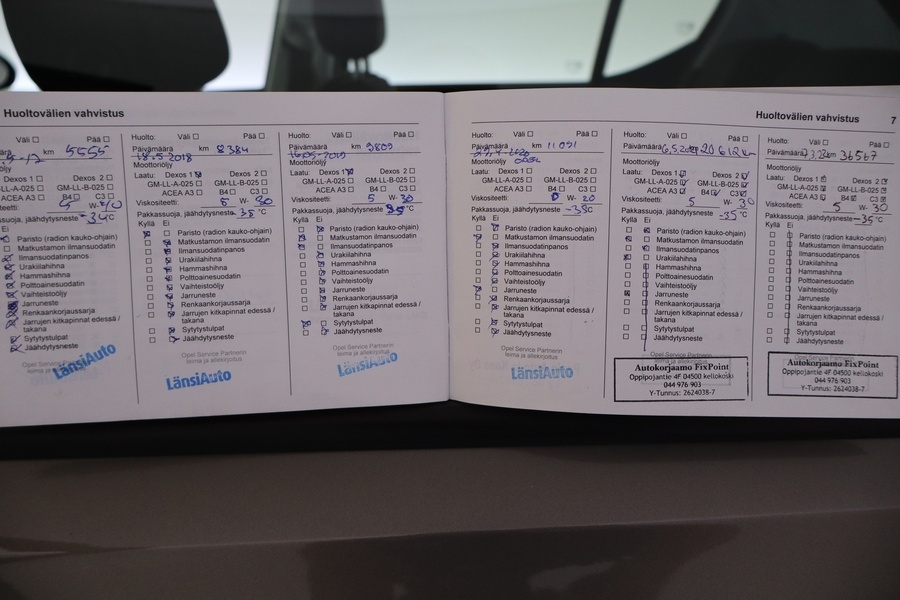 Huoltovälien vahvistus
Väli Pää
km 5555
Dexos 1 Dexos 2
GM-LL-B-025
ACEA A3 B4 C3
5 W-
jäähdytysneste -34°C
Ei
Paristo (radion kauko-ohjain)
Matkustamon ilmansuodatin
Ilmansuodatinpanos
Urakiilahihna
Hammashihna
Polttoainesuodatin
Vaihteistoöljy
Jarruneste
Renkaankorjaussarja
Jarrujen kitkapinnat edessä /
takana
Sytytystulpat
Jäähdytysneste
LänsiAuto
Huolto: Väli Pää
Päivämäärä km 8384
18.5 2018
Moottoriöljy
Laatu: Dexos 1 Dexos 2
GM-LL-A-025 GM-LL-B-025
ACEA A3 B4 C3
Viskositeetti: 5 W-30
Pakkassuoja, jäähdytysneste -35 °C
Kyllä Ei
Paristo (radion kauko-ohjain)
Matkustamon ilmansuodatin
Ilmansuodatinpanos
Urakiilahihna
Hammashihna
Polttoainesuodatin
Vaihteistoöljy
Jarruneste
Renkaankorjaussarja
Jarrujen kitkapinnat edessä /
takana
Sytytystulpat
Jäähdytysneste
Opel Service Partnerin
leima ja allekirjoitus
LänsiAuto
Huolto: Väli Pää
Päivämäärä km 9809
Moottoriöljy
Laatu: Dexos 1 Dexos 2
GM-LL-A-025 GM-LL-B-025
ACEA A3 B4 C3
Viskositeetti: 5 W-30
Pakkassuoja, jäähdytysneste °C
Kyllä Ei
Paristo (radion kauko-ohjain)
Matkustamon ilmansuodatin
Ilmansuodatinpanos
Urakiilahihna
Hammashihna
Polttoainesuodatin
Vaihteistoöljy
Jarruneste
Renkaankorjaussarja
Jarrujen kitkapinnat edessä /
takana
Sytytystulpat
Jäähdytysneste
Opel Service Partnerin
leima ja allekirjoitus
LänsiAuto
Huoltovälien vahvistus 7
Huolto: Väli Pää
Päivämäärä km 11091
Moottoriöljy
Laatu: Dexos 1 Dexos 2
GM-LL-A-025 GM-LL-B-025
ACEA A3 B4 C3
Viskositeetti: 0 W- 20
Pakkassuoja, jäähdytysneste °C
Kyllä Ei
Paristo (radion kauko-ohjain)
Matkustamon ilmansuodatin
Ilmansuodatinpanos
Urakiilahihna
Hammashihna
Polttoainesuodatin
Vaihteistoöljy
Jarruneste
Renkaankorjaussarja
Jarrujen kitkapinnat edessä /
takana
Sytytystulpat
Jäähdytysneste
Opel Service Partnerin
leima ja allekirjoitus
LänsiAuto
Huolto: Väli Pää
Päivämäärä
Moottoriöljy
Laatu: Dexos 1 Dexos 2
GM-LL-A-025 GM-LL-B-025
ACEA A3 B4 C3
Viskositeetti: 5 W- 30
Pakkassuoja, jäähdytysneste -35 °C
Kyllä Ei
Paristo (radion kauko-ohjain)
Matkustamon ilmansuodatin
Ilmansuodatinpanos
Urakiilahihna
Hammashihna
Polttoainesuodatin
Vaihteistoöljy
Jarruneste
Renkaankorjaussarja
Jarrujen kitkapinnat edessä /
takana
Sytytystulpat
Jäähdytysneste
Opel Service Partnerin
Autokorjaamo FixPoint
Oppipojantie 4F 04500 kellokoski
044 976 903
Y-Tunnus: 2624038-7
Huolto: Väli Pää
Päivämäärä km 36567
Moottoriöljy
Laatu: Dexos 1 Dexos 2
GM-LL-A-025 GM-LL-B-025
ACEA A3 B4 C3
Viskositeetti: 5 W- 30
Pakkassuoja, jäähdytysneste -35 °C
Kyllä Ei
Paristo (radion kauko-ohjain)
Matkustamon ilmansuodatin
Ilmansuodatinpanos
Urakiilahihna
Hammashihna
Polttoainesuodatin
Vaihteistoöljy
Jarruneste
Renkaankorjaussarja
Jarrujen kitkapinnat edessä /
takana
Sytytystulpat
Jäähdytysneste
Autokorjaamo FixPoint
Oppipojantie 4F 04500 kellokoski
044 976 903
Y-Tunnus: 2624038-7